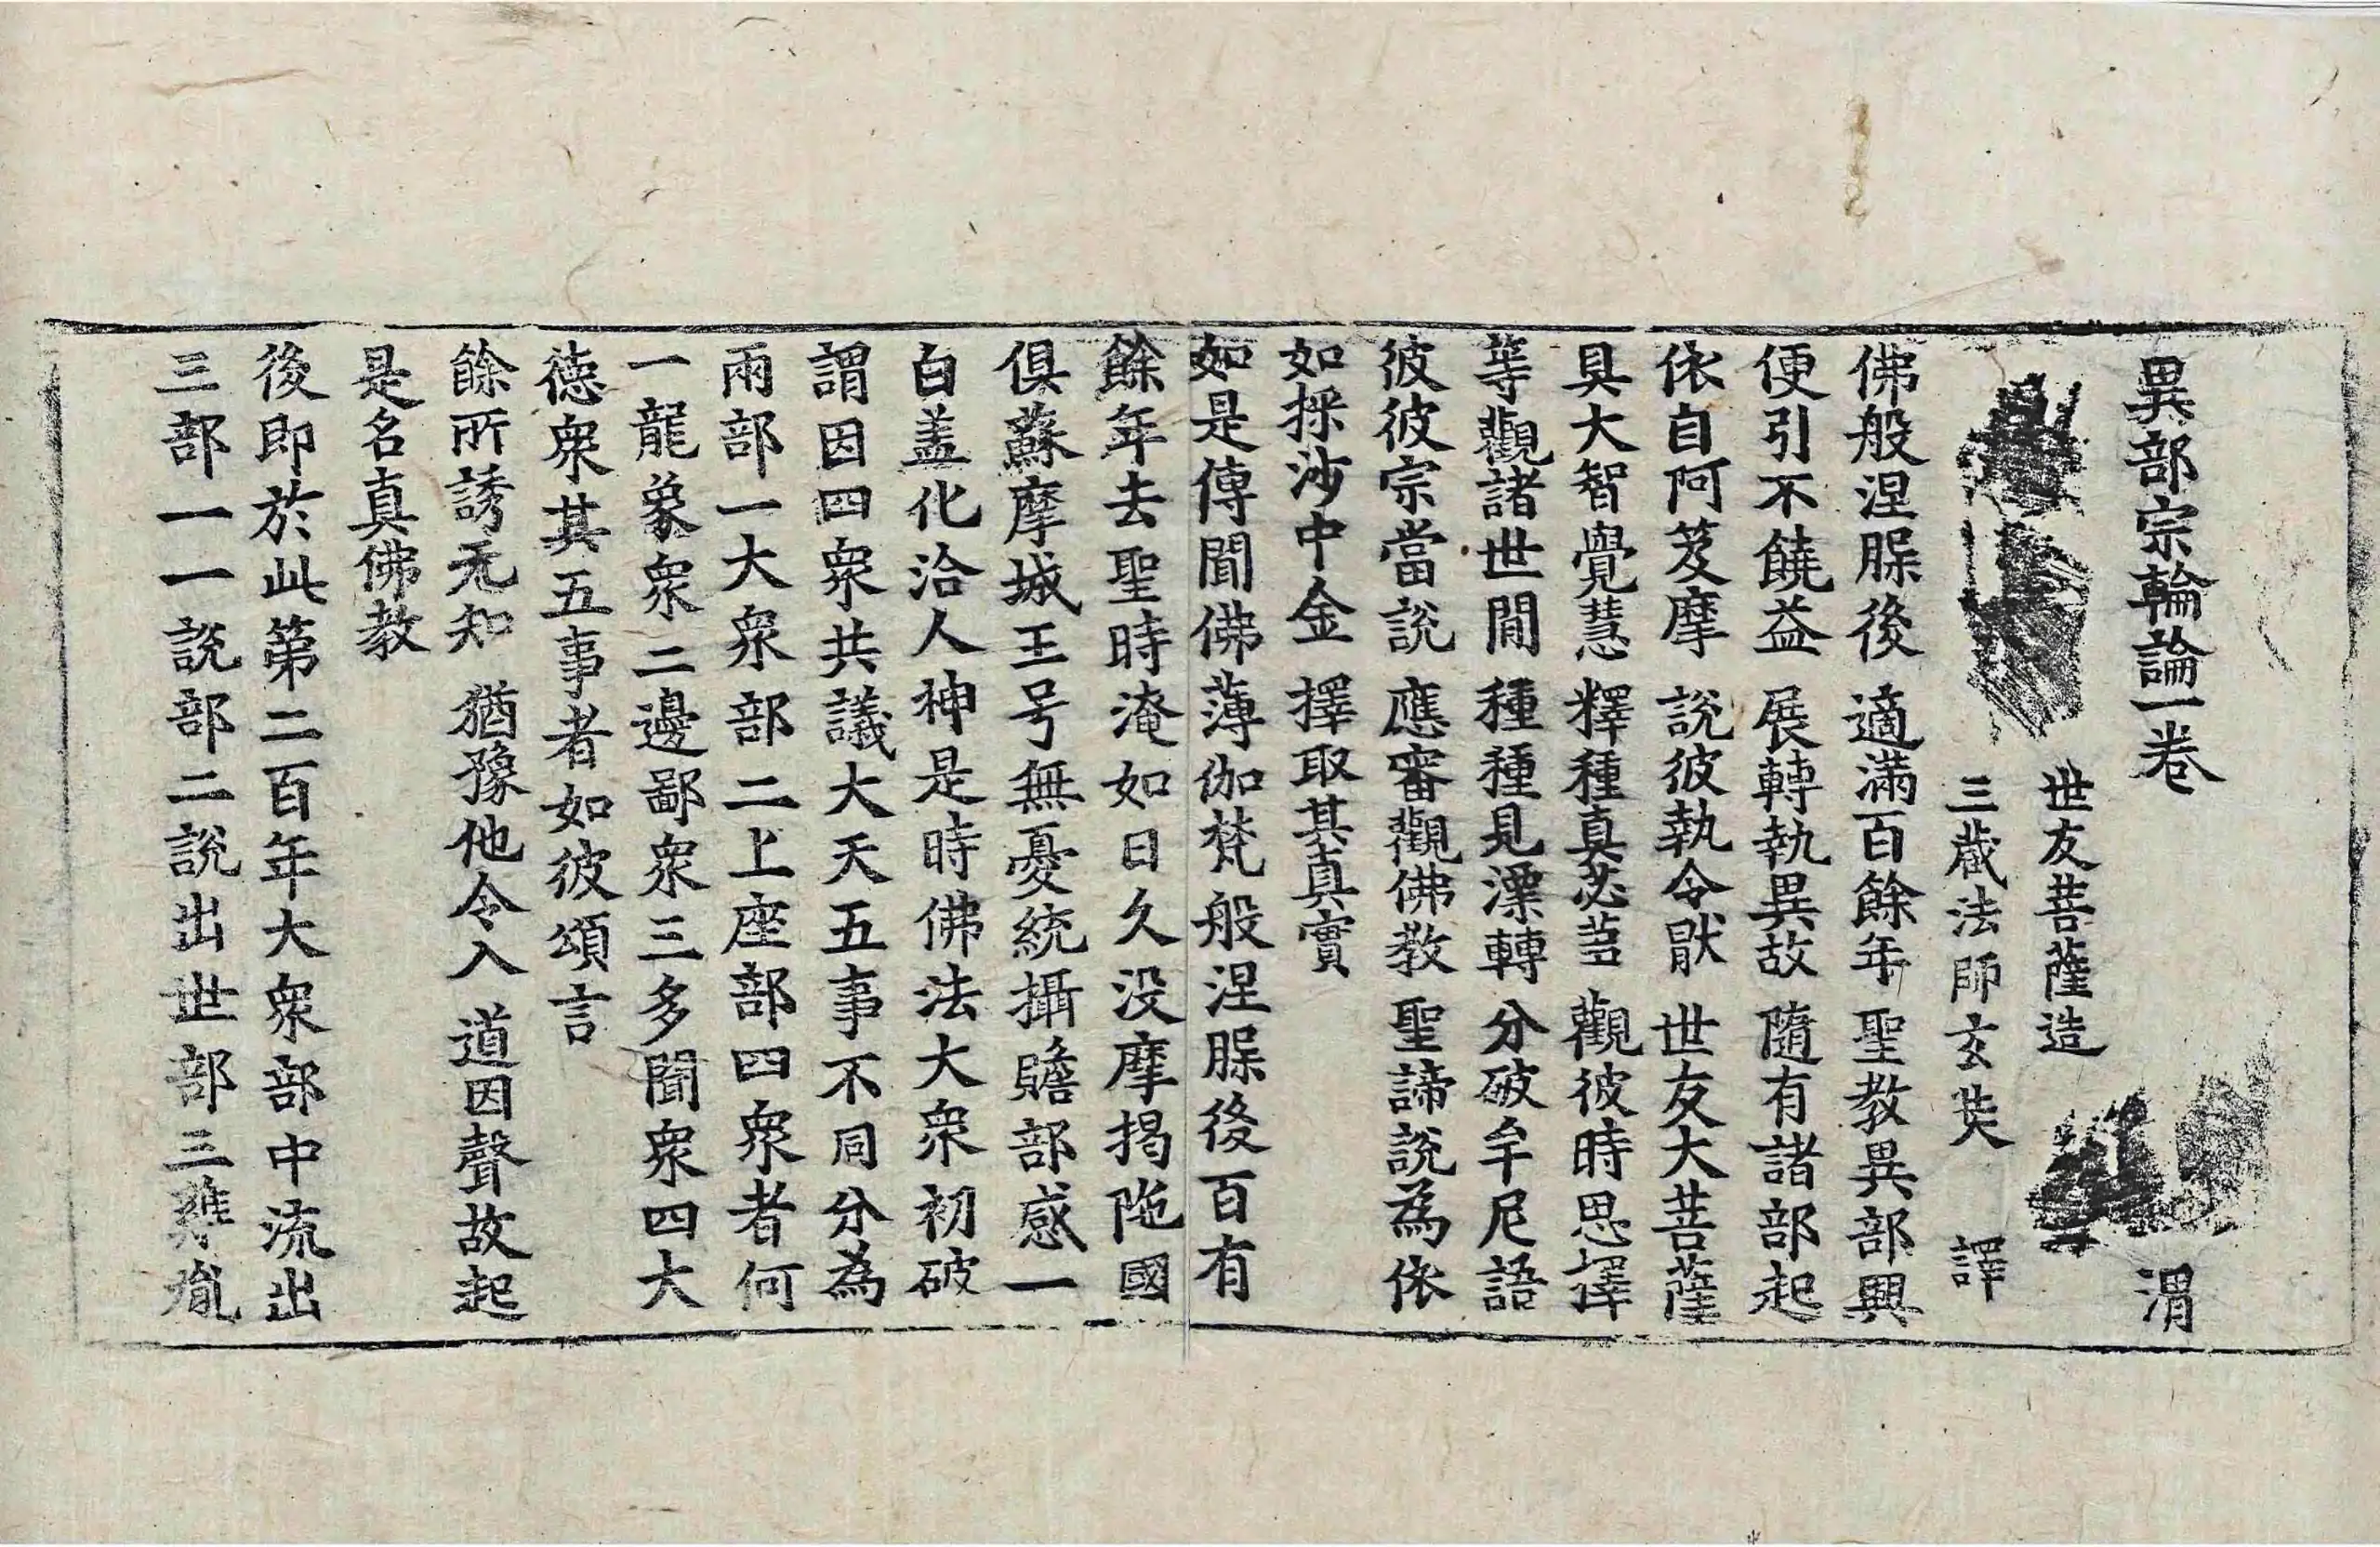 異部宗輪論一卷 渭
世友菩薩造
三蔵法師玄奘 譯
佛般涅脲後 適滿百餘年 聖教異部興
便引不饒益 展轉執異故 隨有諸部起
依自阿笈摩 說彼執令猒 世友大菩薩
具大智覺慧 釋種真苾蒭 觀彼時思擇
等觀諸世間 種種見漂轉 分破牟尼語
彼彼宗當說 應審觀佛教 聖諦說為依
如採沙中金 擇取其真實
如是傳聞佛薄伽梵般涅脲後百有
餘年去聖時淹如日久没摩揭陁國
俱蘇摩城王号無憂統攝贍部感一
白盖化洽人神是時佛法大衆初破
謂因四衆共議大天五事不同分為
兩部一大衆部二上座部四衆者何
一龍象衆二邊鄙衆三多聞衆四大
德衆其五事者如彼頌言
餘所誘无知 猶豫他令入 道因聲故起
是名真佛教
後即於此第二百年大衆部中流出
三部一一說部二說出世部三雞胤